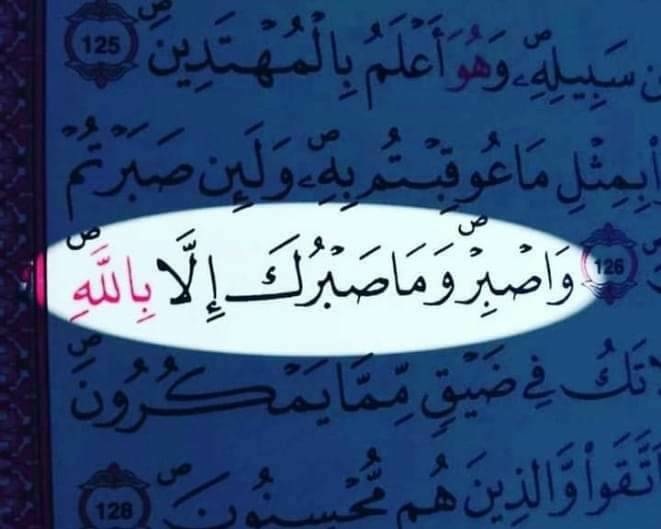 سَبِيلِهِۦ وَهُوَ أَعْلَمُ بِالْمُهْتَدِينَ 125
بِمِثْلِ مَا عُوقِبْتُمْ بِهِۦ وَلَئِن صَبَرْتُمْ
126 وَاصْبِرْ وَمَا صَبْرُكَ إِلَّا بِاللَّهِ
تَكُ فِي ضَيْقٍ مِّمَّا يَمْكُرُونَ
اتَّقَوا وَّالَّذِينَ هُم مُّحْسِنُونَ 128